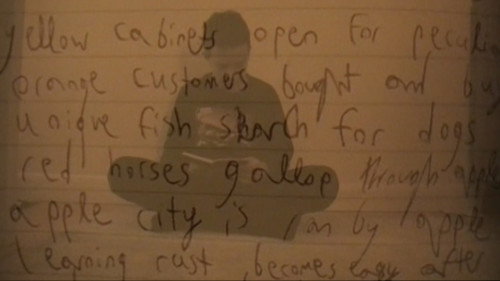 yellow cabinets open for
orange customers bought and
unique fish search for dogs
red horses gallop through apple
apple city is ran by apple
learning rust becomes easy after